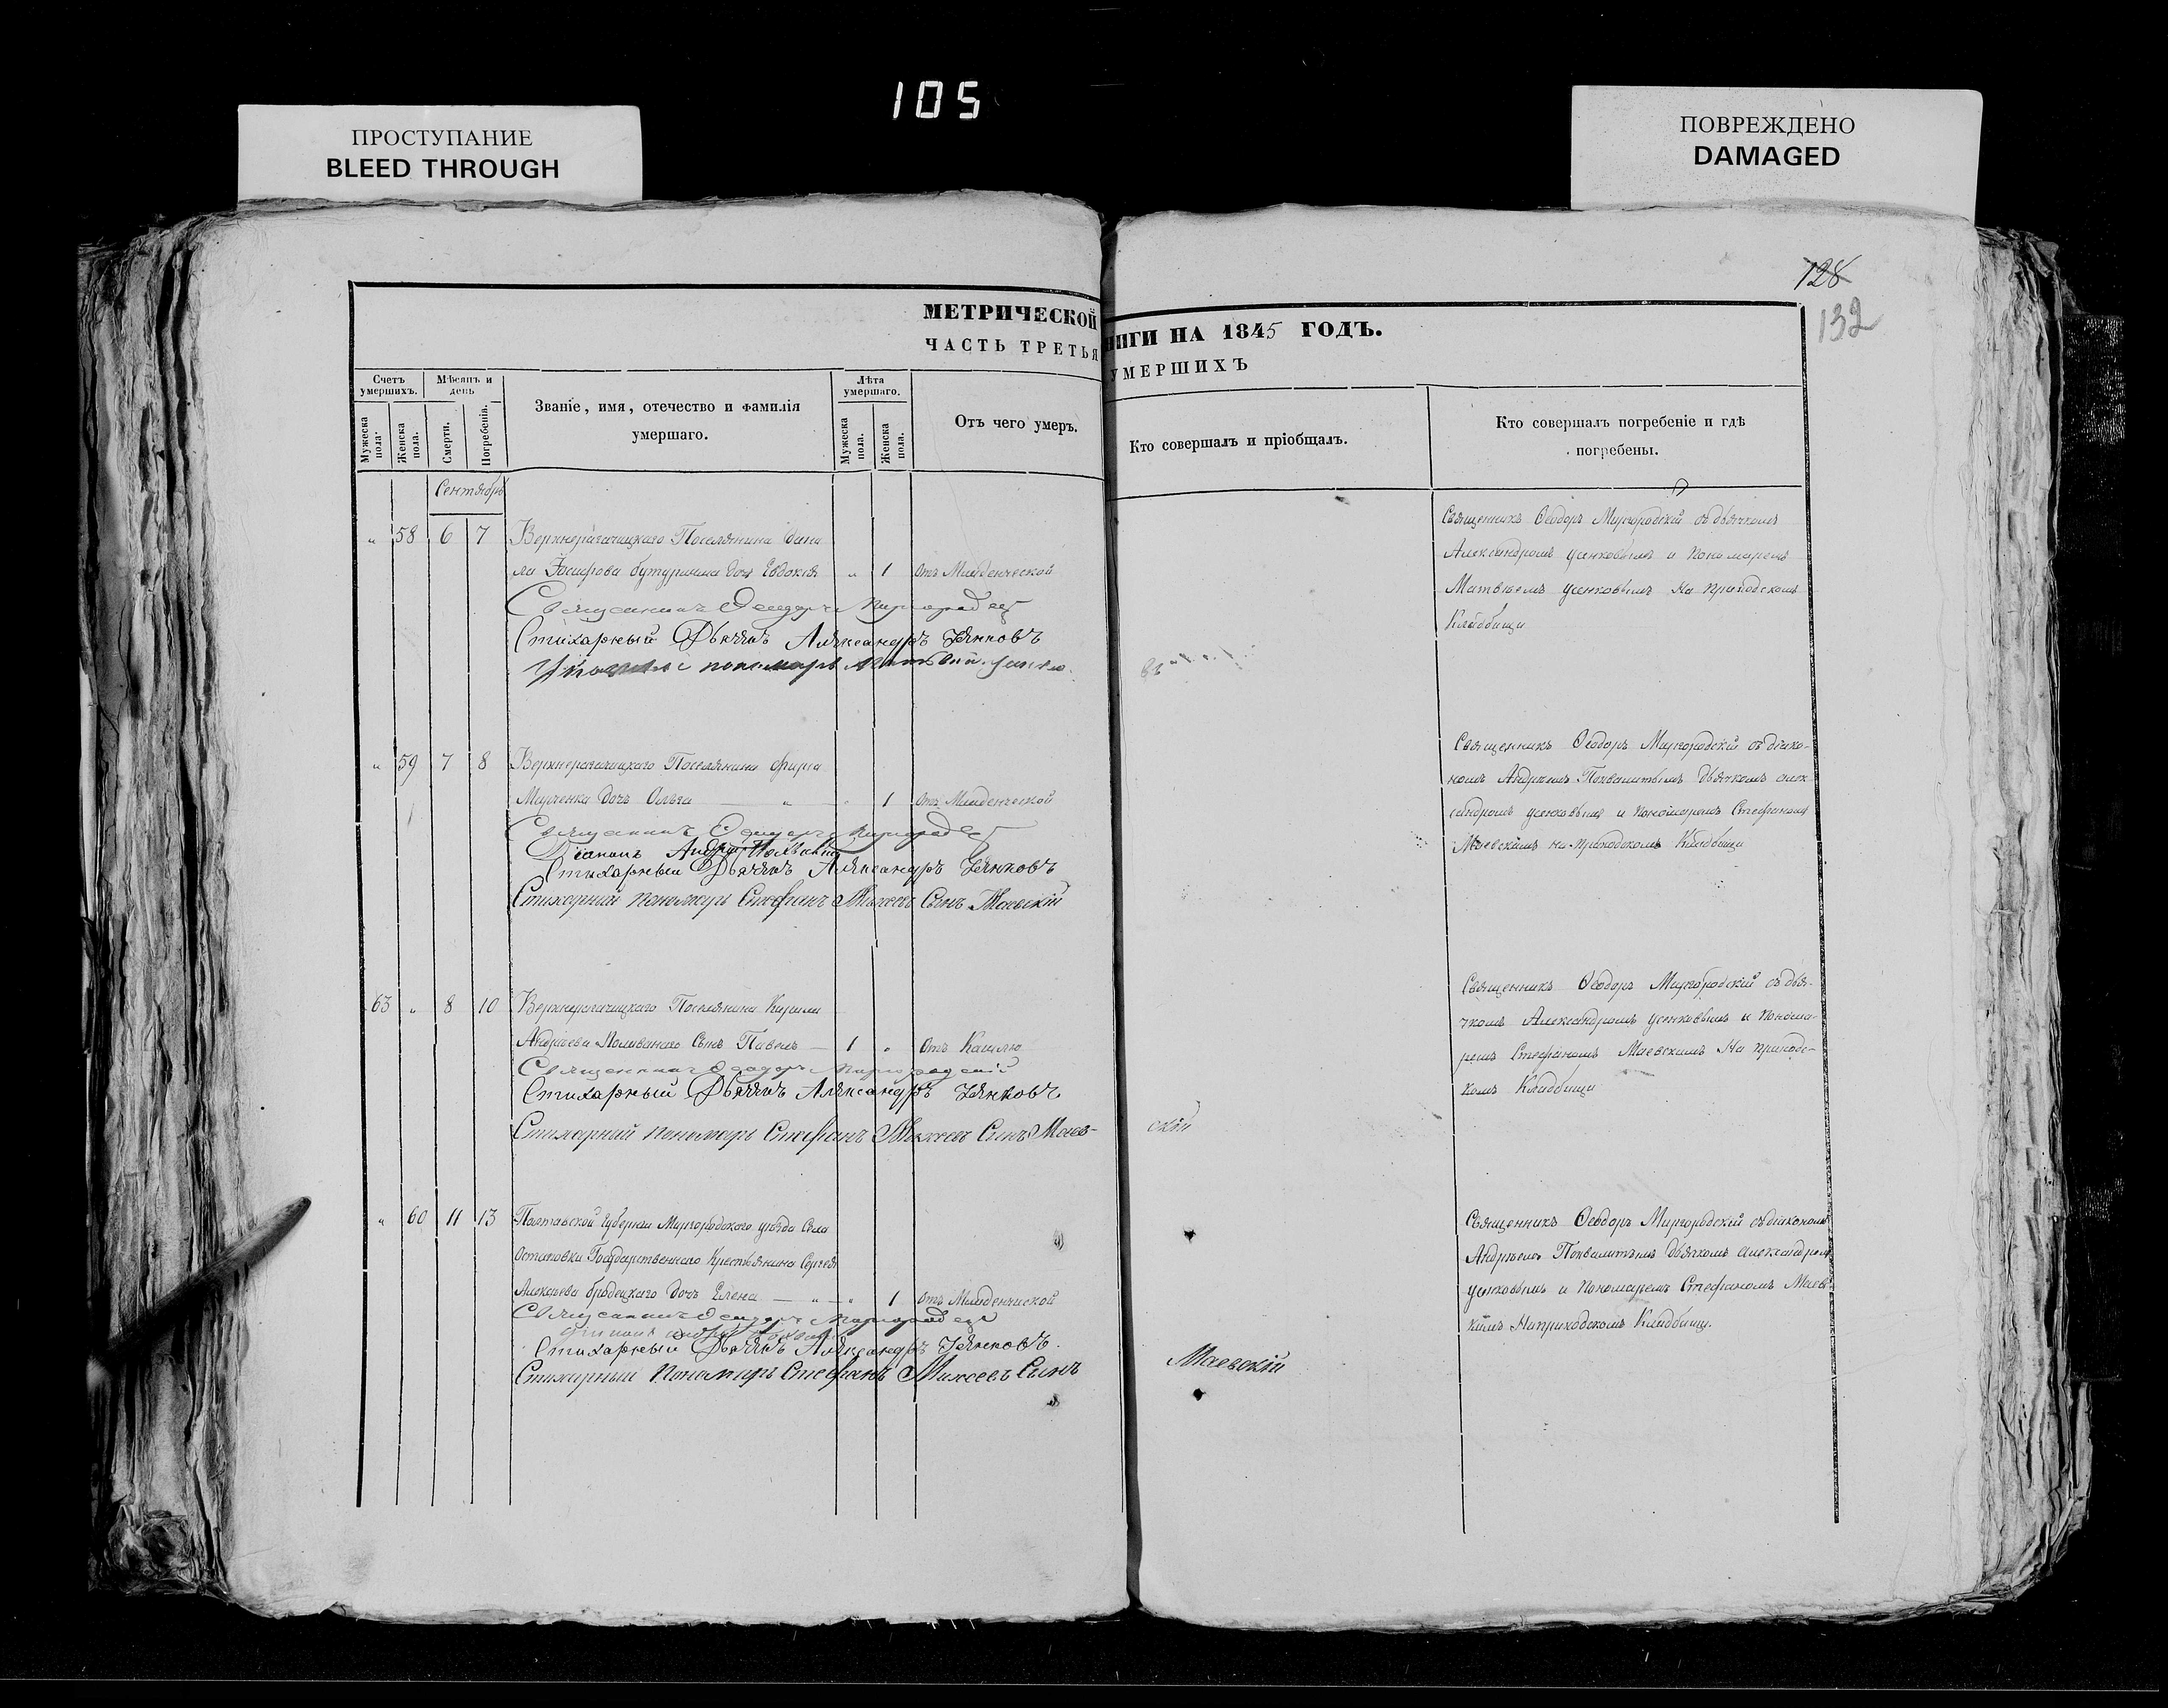 105
ПРОСТУПАНИЕ
BLEED THROUGH
ПОВРЕЖДЕНО
DAMAGED
128
132
МЕТРИЧЕСКОЙ
НИГИ НА 1845 ГОДЪ.
ЧАСТЬ ТРЕТЬЯ
УМЕРШИХЪ
Счетъ умершихъ.
Мѣсяцъ и день
Званіе, имя, отечество и фамилія умершаго.
Лѣта умершаго.
Отъ чего умеръ.
Кто совершалъ и пріобщалъ.
Кто совершалъ погребеніе и гдѣ погребены.
Мужеска пола.
Женска пола.
Смерти.
Погребенія.
Мужеска пола.
Женска пола.
Сентябрь
" 58 6 7 Верхнерогачицкаго Поселянина Дани
ла Іосифова Бутурлина дочь Евдокія " 1 Отъ Младенческой
Священникъ Ѳеодоръ Миргородскій
Стихарный Дьячекъ Александръ Усенковъ
пономарь Матвій Усенко
въ
Священникъ Ѳеодоръ Миргородскій съ дьячкомъ
Александромъ Усенковымъ и Пономаремъ
Матвѣемъ Усенковымъ На Приходскомъ
Кладбищи
" 59 7 8 Верхнерогачицкаго Поселянина Фирса
Марченка дочь Ольга — " — " 1 Отъ Младенческой
Священникъ Ѳеодоръ Миргородскій
Діаконъ Андрей
Стихарный Дьячекъ Александръ Усенковъ
Стихарный Пономарь Стефанъ Михеевъ Сынъ Маевскій
Священникъ Ѳеодоръ Миргородскій съ діако-
номъ Андреемъ Похвалитымъ дьячкомъ Алек
сандромъ Усенковымъ и Пономаремъ Стефаномъ
Маевскимъ на Приходскомъ Кладбищи
63 " 8 10 Верхнерогачицкаго Поселянина Кирила
Андреева Поливанаго Сынъ Павелъ — 1 " Отъ Кашлю
Священникъ Ѳеодоръ Миргородскій
Стихарный Дьячекъ Александръ Усенковъ
Стихарный Пономарь Стефанъ Михеевъ Сынъ Маев-
скій
Священникъ Ѳеодоръ Миргородскій съ дья-
чкомъ Александромъ Усенковымъ и Понома-
ремъ Стефаномъ Маевскимъ На Приходс-
комъ Кладбищи
" 60 11 13 Полтавской Губерніи Миргородскаго уѣзда Села
Остаповки Государственнаго Крестьянина Сергея
Алексѣева Бродецкаго дочь Елена — " — " 1 Отъ Младенческой
Священникъ Ѳеодоръ Миргородскій
Стихарный Дьячекъ Александръ Усенковъ.
Стихарный Пономарь Стефанъ Михеевъ Сынъ
Маевскій
Священникъ Ѳеодоръ Миргородскій съ діакономъ
Андреемъ Похвалитымъ дьячкомъ Александромъ
Усенковымъ и Пономаремъ Стефаномъ Маевс
кимъ На приходскомъ Кладбищу.